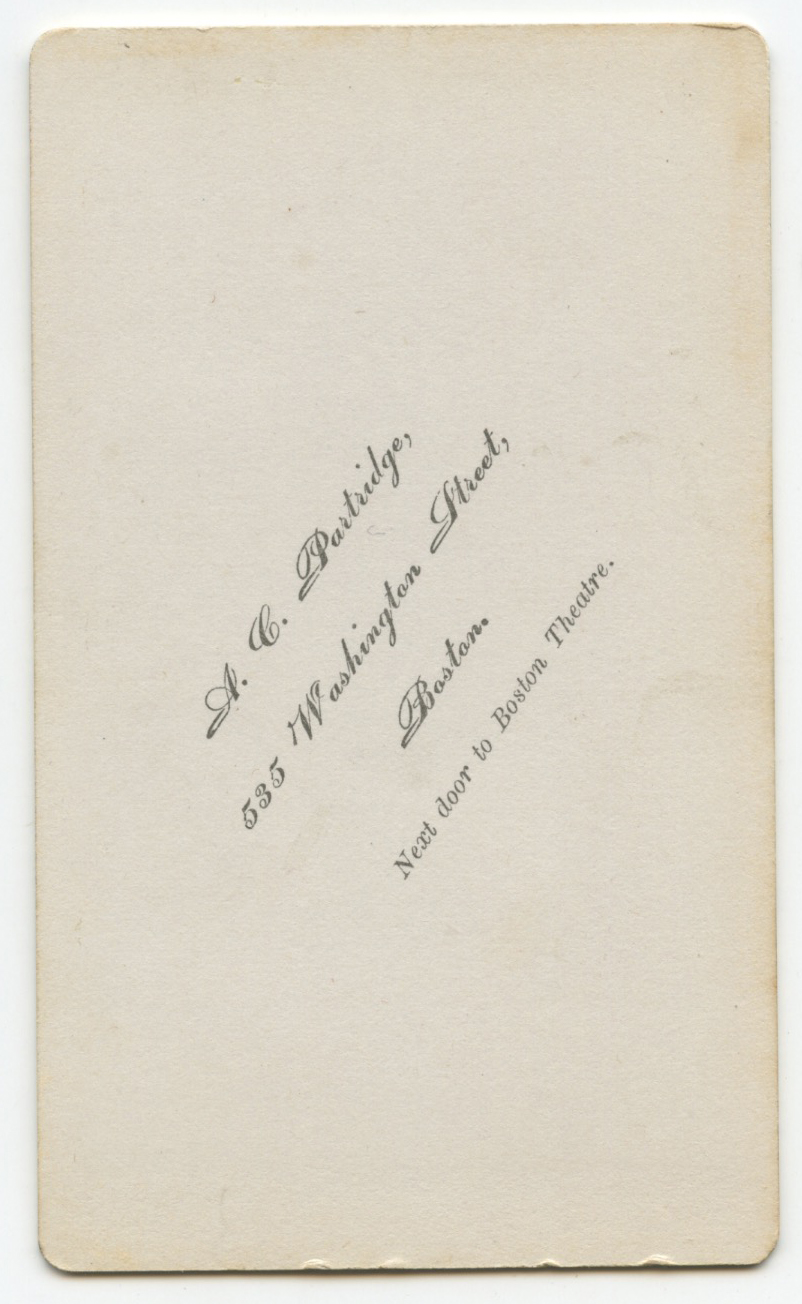 A. C. Partridge,
535 Washington Street,
Boston.
Next door to Boston Theatre.